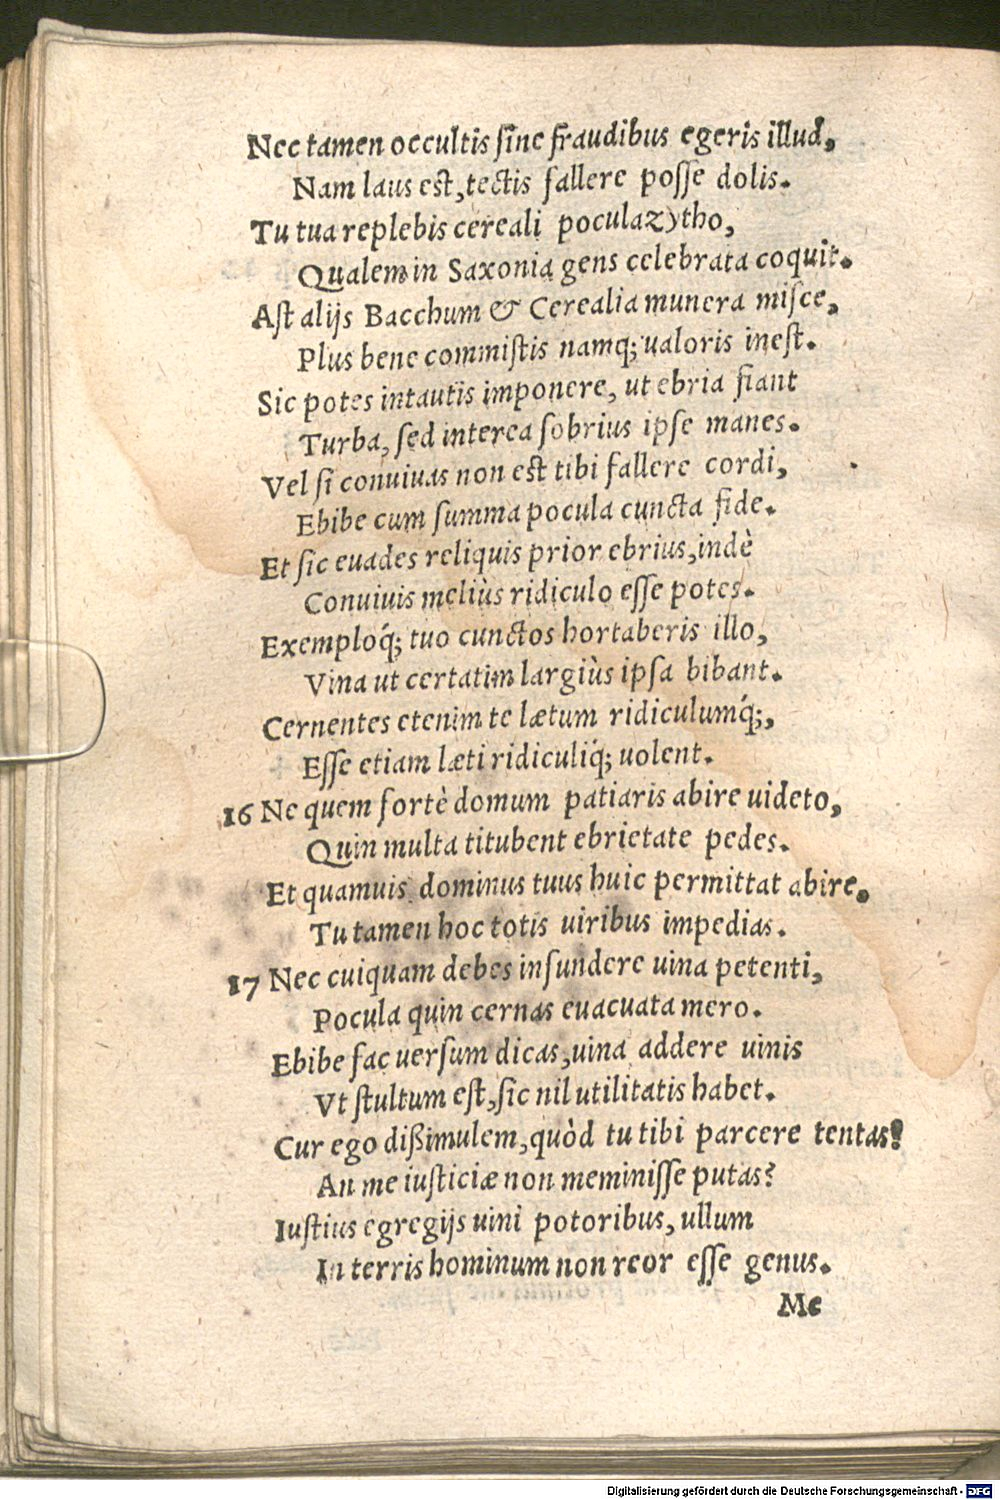 Nec tamen occultis sine fraudibus egeris illud,
Nam laus est, tectis fallere posse dolis.
Tu tua replebis cereali pocula zytho,
Qualem in Saxonia gens celebrata coquit.
Ast alijs Bacchum & Cerealia munera misce,
Plus bene commistis namq; ualoris inest.
Sic potes intautis imponere, ut ebria fiant
Turba, sed interea sobrius ipse manes.
Vel si conuiuas non est tibi fallere cordi,
Ebibe cum summa pocula cuncta fide.
Et sic euades reliquis prior ebrius, indè
Conuiuis meliùs ridiculo esse potes.
Exemploq́; tuo cunctos hortaberis illo,
Vina ut certatim largiùs ipsa bibant.
Cernentes etenim te lætum ridiculumq́;,
Esse etiam læti ridiculiq́; uolent.
16 Ne quem fortè domum patiaris abire uideto,
Quin multa titubent ebrietate pedes.
Et quamuis dominus tuus huic permittat abire,
Tu tamen hoc totis uiribus impedias.
17 Nec cuiquam debes infundere uina petenti,
Pocula quin cernas euacuata mero.
Ebibe fac uersum dicas, uina addere uinis
Vt stultum est, sic nil utilitatis habet.
Cur ego dißimulem, quòd tu tibi parcere tentas?
An me iusticiæ non meminisse putas?
Iustius egregijs uini potoribus, ullum
In terris hominum non reor esse genus.
Me
Digitalisierung gefördert durch die Deutsche Forschungsgemeinschaft - DFG